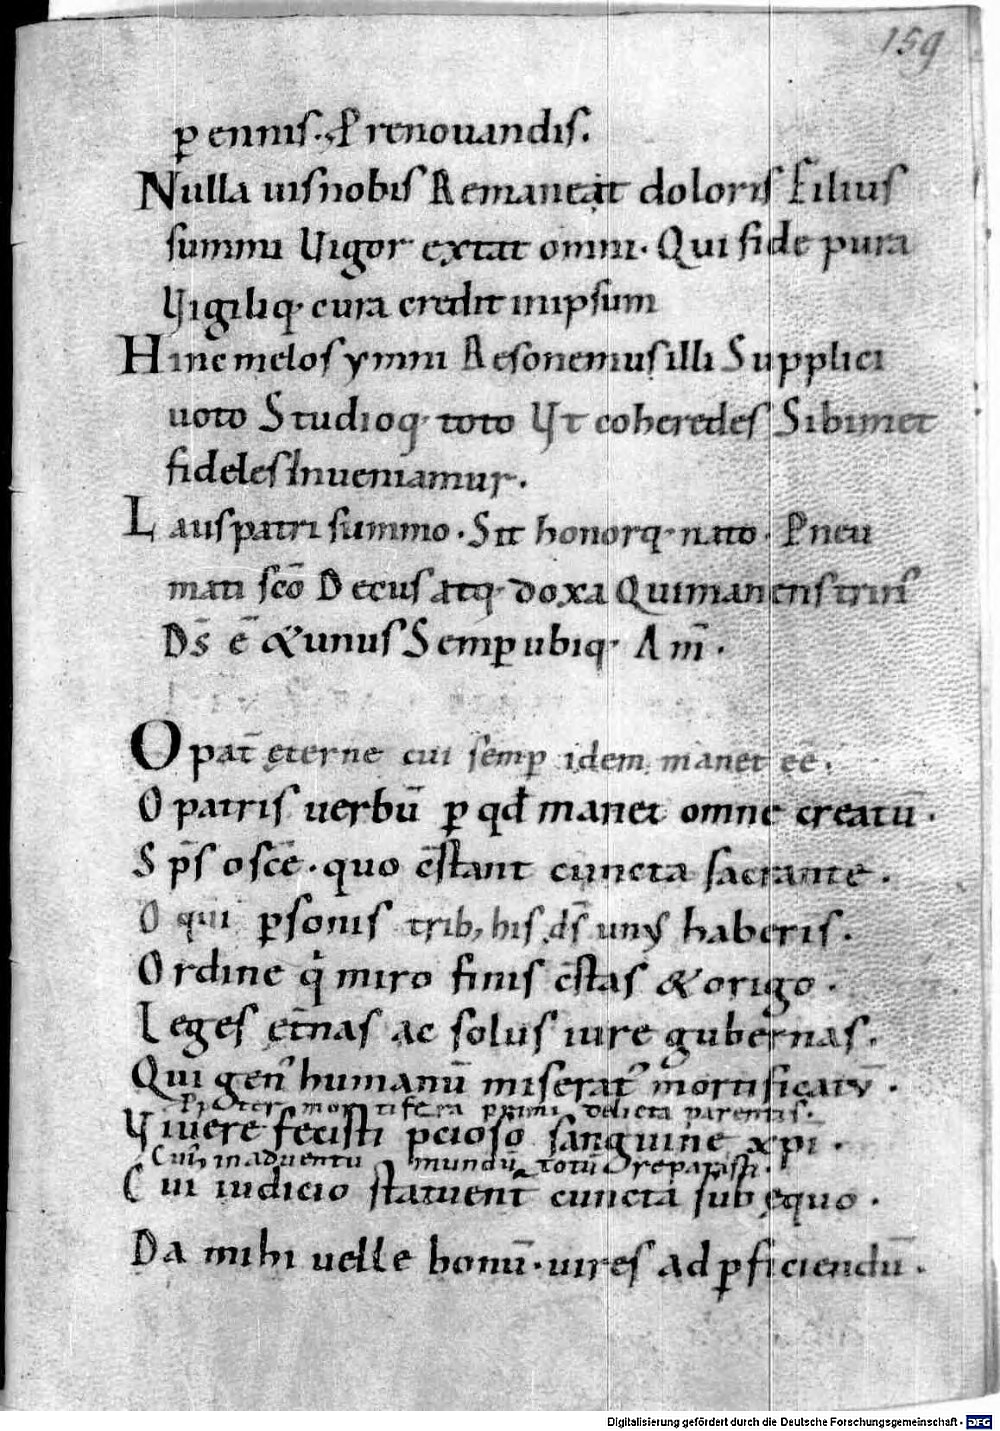 159
ꝑ ennis. & renouandis.
Nulla uis nobis Remaneat doloris Filius
summi Vigor extat omni. Qui fide pura
Vigiliq. cura credit inipsum
Hinc melos ymni Resonemus illi Supplici
uoto Studioq. toto Vt coheredes Sibimet
fideles Inueniamur.
Laus patri summo. Sit honorq. nato. Pneu
mati sc̄o Decus atq. doxa Qui manens trin'
Ds̄ ē & unus Semꝑ ubiq. Am̄.
O pat̄ ęterne cui semꝑ idem manet eē.
O patris uerbū ꝑ qd̄ manet omne creatū.
Sps̄ o sc̄e. quo c̄stant cuncta sacrante.
O qui ꝑsonis trib; his ds̄ unꝰ haberis.
Ordine q miro finis c̄stas & origo.
Leges et̄nas ac solus iure gubernas.
Qui gen' humanū miserat' mortificatū.
Propter mortifera primi delicta parentis.
Viuere fecisti p̄cioso sanguine xp̄i.
Cui' inaduentu mundū totū reparasti.
Cui iudicio statuent̄ cuncta sub ęquo.
Da mihi uelle bonū. uires ad ꝑficiendū.
Digitalisierung gefördert durch die Deutsche Forschungsgemeinschaft - DFG